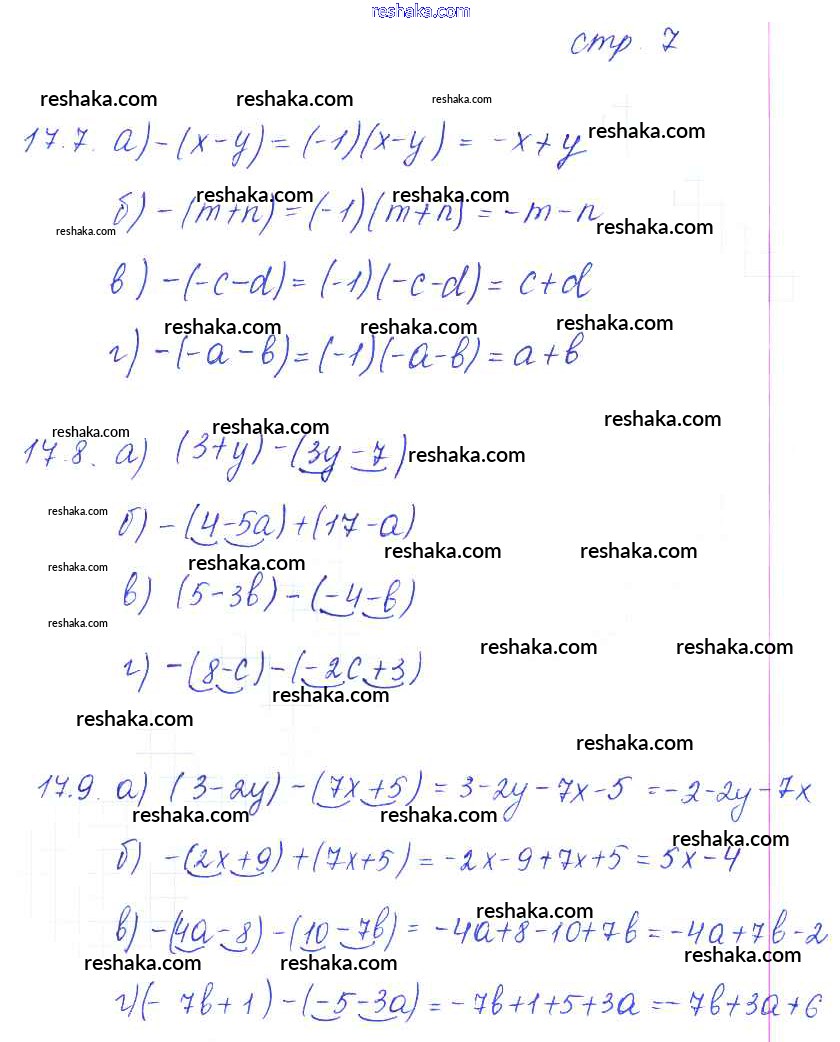 reshaka.com
стр. 7
reshaka.com reshaka.com reshaka.com
17.7. а) -(x-y) = (-1)(x-y) = -x+y reshaka.com
reshaka.com reshaka.com
б) -(m+n) = (-1)(m+n) = -m-n
reshaka.com reshaka.com
в) -(-c-d) = (-1)(-c-d) = c+d
reshaka.com reshaka.com reshaka.com
г) -(-a-b) = (-1)(-a-b) = a+b
reshaka.com
reshaka.com reshaka.com
17.8. а) (3+y)-(3y-7) reshaka.com
reshaka.com
б) -(4-5a)+(17-a)
reshaka.com reshaka.com
reshaka.com reshaka.com
в) (5-3b)-(-4-b)
reshaka.com
reshaka.com reshaka.com
г) -(8-c)-(-2c+3)
reshaka.com
reshaka.com
reshaka.com
17.9. а) (3-2y)-(7x+5) = 3-2y-7x-5 = -2-2y-7x
reshaka.com reshaka.com
reshaka.com
б) -(2x+9)+(7x+5) = -2x-9+7x+5 = 5x-4
reshaka.com
в) -(4a-8)-(10-7b) = -4a+8-10+7b = -4a+7b-2
reshaka.com reshaka.com reshaka.com
г) (-7b+1)-(-5-3a) = -7b+1+5+3a = -7b+3a+6